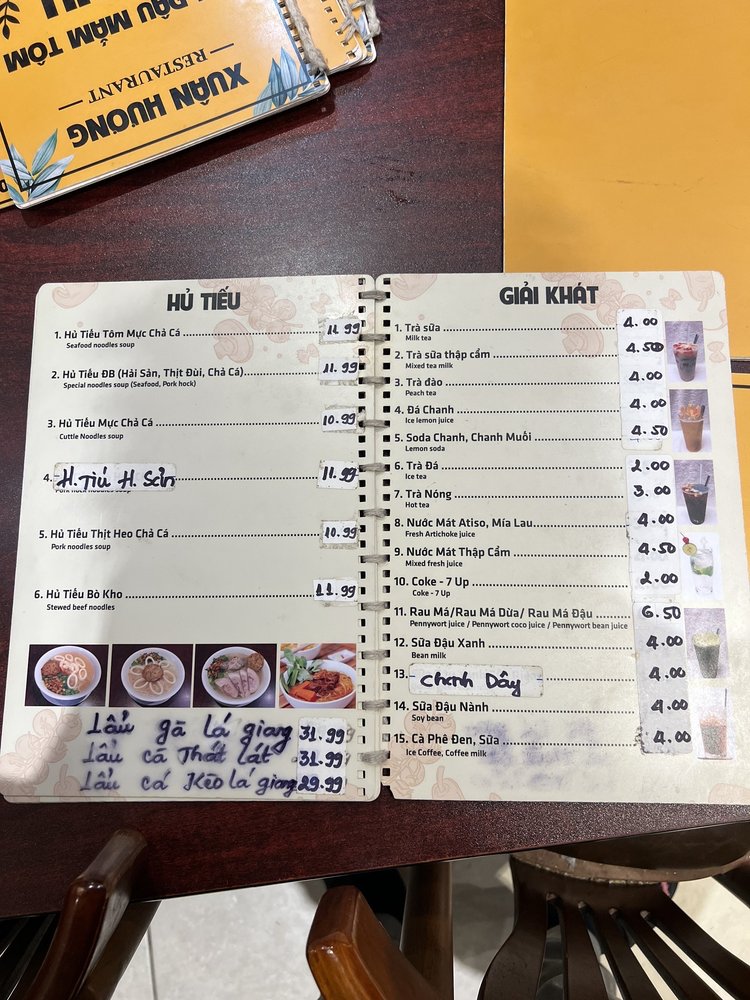 ĐẬU MẮM TÔM
RESTAURANT
XUÂN HƯƠNG
HỦ TIẾU
1. Hủ Tiếu Tôm Mực Chả Cá 11.99
Seafood noodles soup
2. Hủ Tiếu ĐB (Hải Sản, Thịt Đùi, Chả Cá) 11.99
Special noodles soup (Seafood, Pork hock)
3. Hủ Tiếu Mực Chả Cá 10.99
Cuttle Noodles soup
4. H.Tiú H. Sản 11.99
Pork hock noodles soup
5. Hủ Tiếu Thịt Heo Chả Cá 10.99
Pork noodles soup
6. Hủ Tiếu Bò Kho 11.99
Stewed beef noodles
Lẩu gà lá giang 31.99
Lẩu cá Thát lát 31.99
Lẩu cá Kèo lá giang 29.99
GIẢI KHÁT
1. Trà sữa 4.00
Milk tea
2. Trà sữa thập cẩm 4.50
Mixed tea milk
3. Trà đào 4.00
Peach tea
4. Đá Chanh 4.00
Ice lemon juice
5. Soda Chanh, Chanh Muối 4.50
Lemon soda
6. Trà Đá 2.00
Ice tea
7. Trà Nóng 3.00
Hot tea
8. Nước Mát Atiso, Mía Lau 4.00
Fresh Artichoke juice
9. Nước Mát Thập Cẩm 4.50
Mixed fresh juice
10. Coke - 7 Up 2.00
Coke - 7 Up
11. Rau Má/Rau Má Dừa/ Rau Má Đậu 6.50
Pennywort juice / Pennywort coco juice / Pennywort bean juice
12. Sữa Đậu Xanh 4.00
Bean milk
13. Chanh Dây 4.00
14. Sữa Đậu Nành 4.00
Soy bean
15. Cà Phê Đen, Sữa 4.00
Ice Coffee, Coffee milk